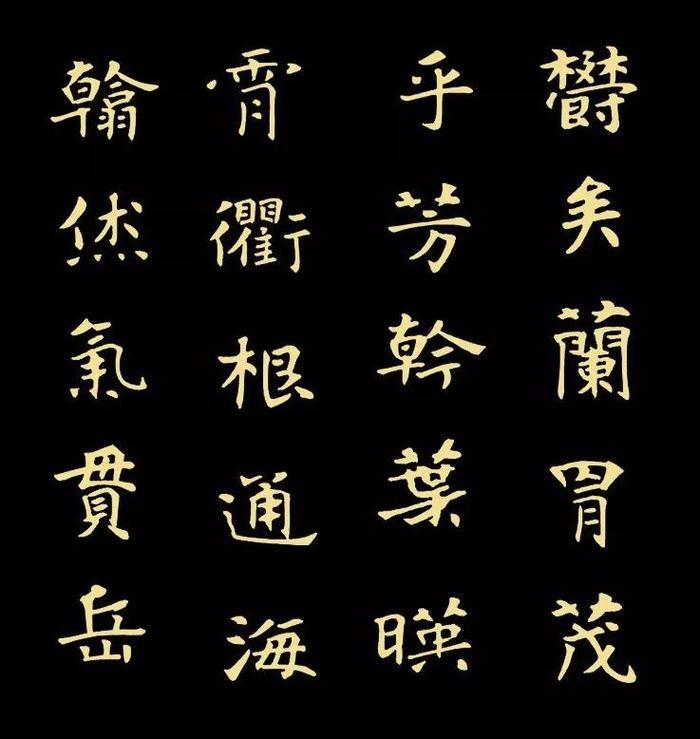 欝矣蘭胄茂
乎芳幹葉暎
霄衢根通海
翰然氣貫岳